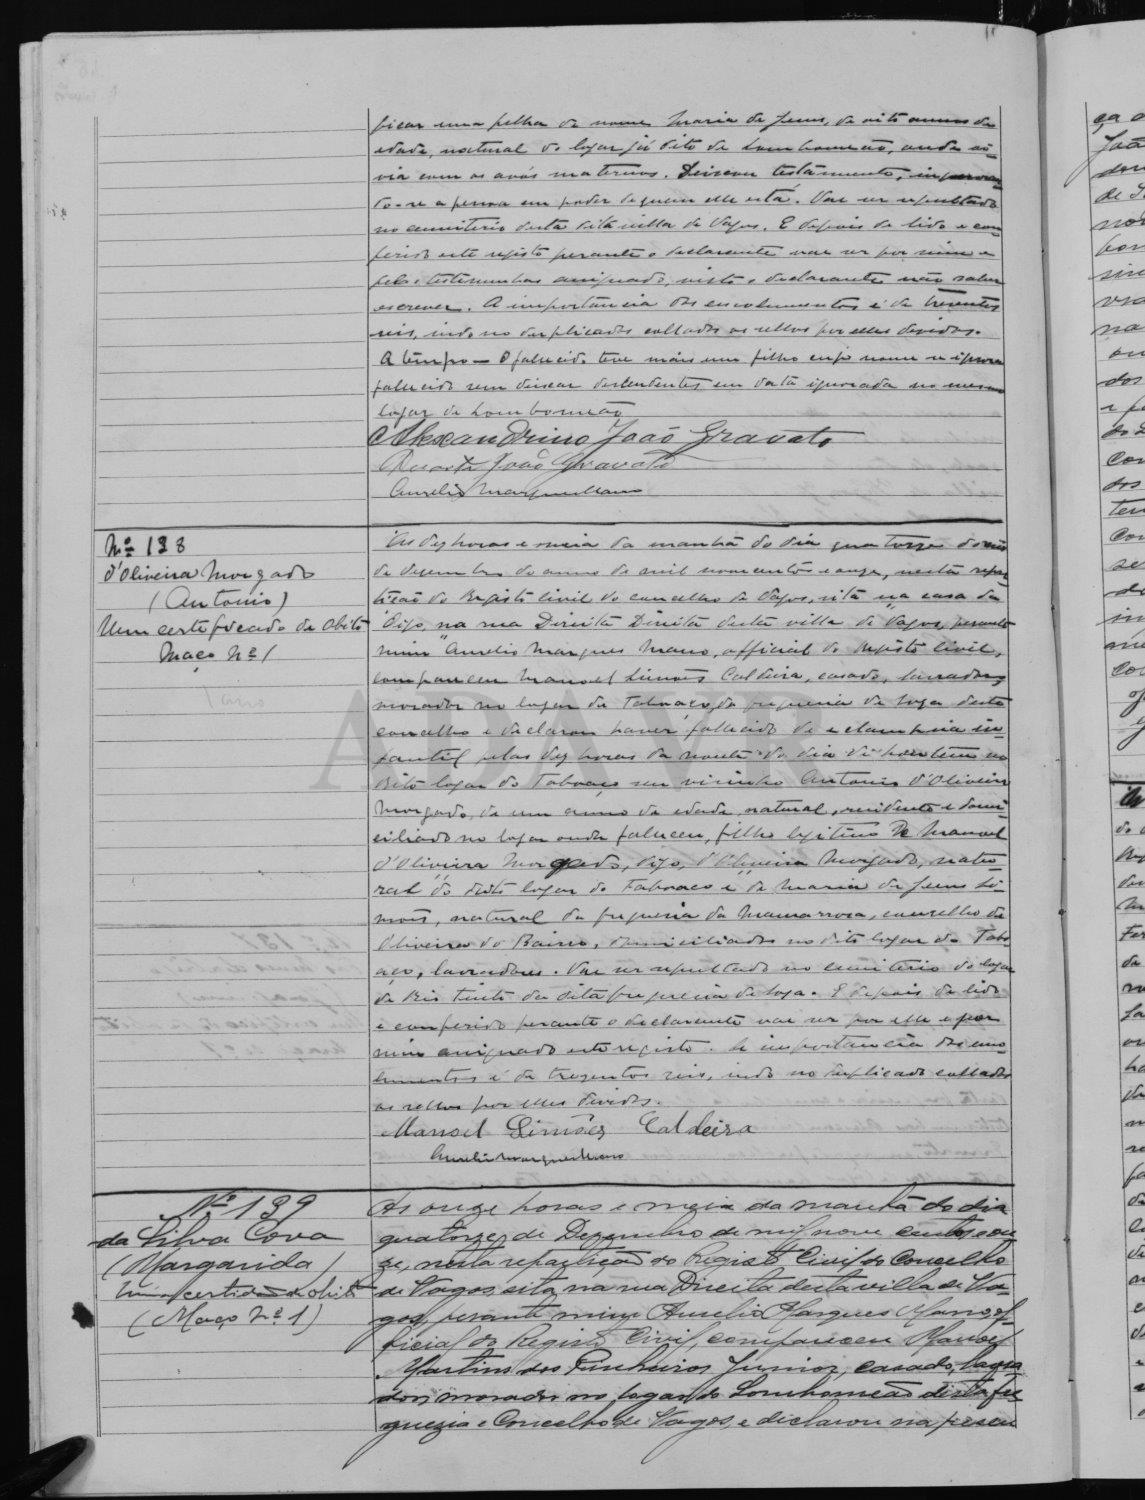 ficar uma filha de nome Maria de Jesus, de oito annos de
edade, natural do logar já dito de Lombomeão, onde vi-
via com os avós maternos. Deixou testamento, ignoran-
do-se a pessoa em poder de quem elle está. Vae ser sepultado
no cemiterio desta dita villa de Vagos. E depois de lido e con-
ferido este registo perante o declarante vae ser por mim e
pelas testemunhas assignado, visto o declarante não saber
escrever. A importancia dos emolumentos é de trezentos
reis, indo no duplicado collados os sellos por elles devidos.
A tempo - O fallecido teve mais um filho cujo nome se ignora
fallecido sem deixar descendentes em data ignorada no mesmo
logar de Lombomeão
Alexandrino João Gravato
Duarte João Gravato
Aurelio Marques Mano
Nº 138
d'Oliveira Morgado
(Antonio)
Um certeficado de obito
Maço Nº 1
As dez horas e meia da manhã do dia quatorze do mês
de dezembro do anno de mil novecentos e onze, nesta repar-
tição do Registo civil do concelho de Vagos, sita na casa da
digo, na rua Direita Direita desta villa de Vagos, perante
mim Aurelio Marques Mano, official do registo civil,
compareceu Manoel Simões Caldeira, casado, lavrador,
morador no logar do Taboaço, da freguesia de Soza deste
concelho e declarou haver fallecido de eclampsia in-
fantil pelas dez horas da noute do dia de hontem no
dito logar do Taboaço seu visinho Antonio d'Oliveira
Morgado, de um anno de edade, natural, residente e domi-
ciliado no logar onde faleceu, filho legitimo de Manoel
d'Oliveira Morgado, digo, d'Oliveira Morgado, natu-
ral do dito logar do Taboaço e de Maria de Jesus Si-
mões, natural da freguesia da Mamarrosa, concelho de
Oliveira do Bairro, domiciliados no dito logar do Tabo-
aço, lavradores. Vae ser sepultado no cemiterio do logar
de Rio Tinto da dita freguesia de Soza. E depois de lido
e conferido perante o declarante vae ser por elle e por
mim assignado este registo. A importancia dos emo-
lumentos é de trezentos reis, indo no duplicado collados
os sellos por elles devidos.
Manoel Simões Caldeira
Aurelio Marques Mano
Nº 139
da Silva Cova
(Margarida)
Uma certidão de obito
(Maço Nº 1)
As onze horas e meia da manhã do dia
quatorze de Dezembro de mil nove centos e on-
ze, nesta repartição do Registo Civil do Concelho
de Vagos sita na rua Direita desta villa de Va-
gos, perante mim Aurelio Marques Mano of-
ficial do Registo Civil, compareceu Manoel
Martins dos Pinheiros Junior, casado, lavra-
dor, morador no logar do Lombomeão desta fre-
guezia e Concelho de Vagos, e declarou na presen
ADAVR